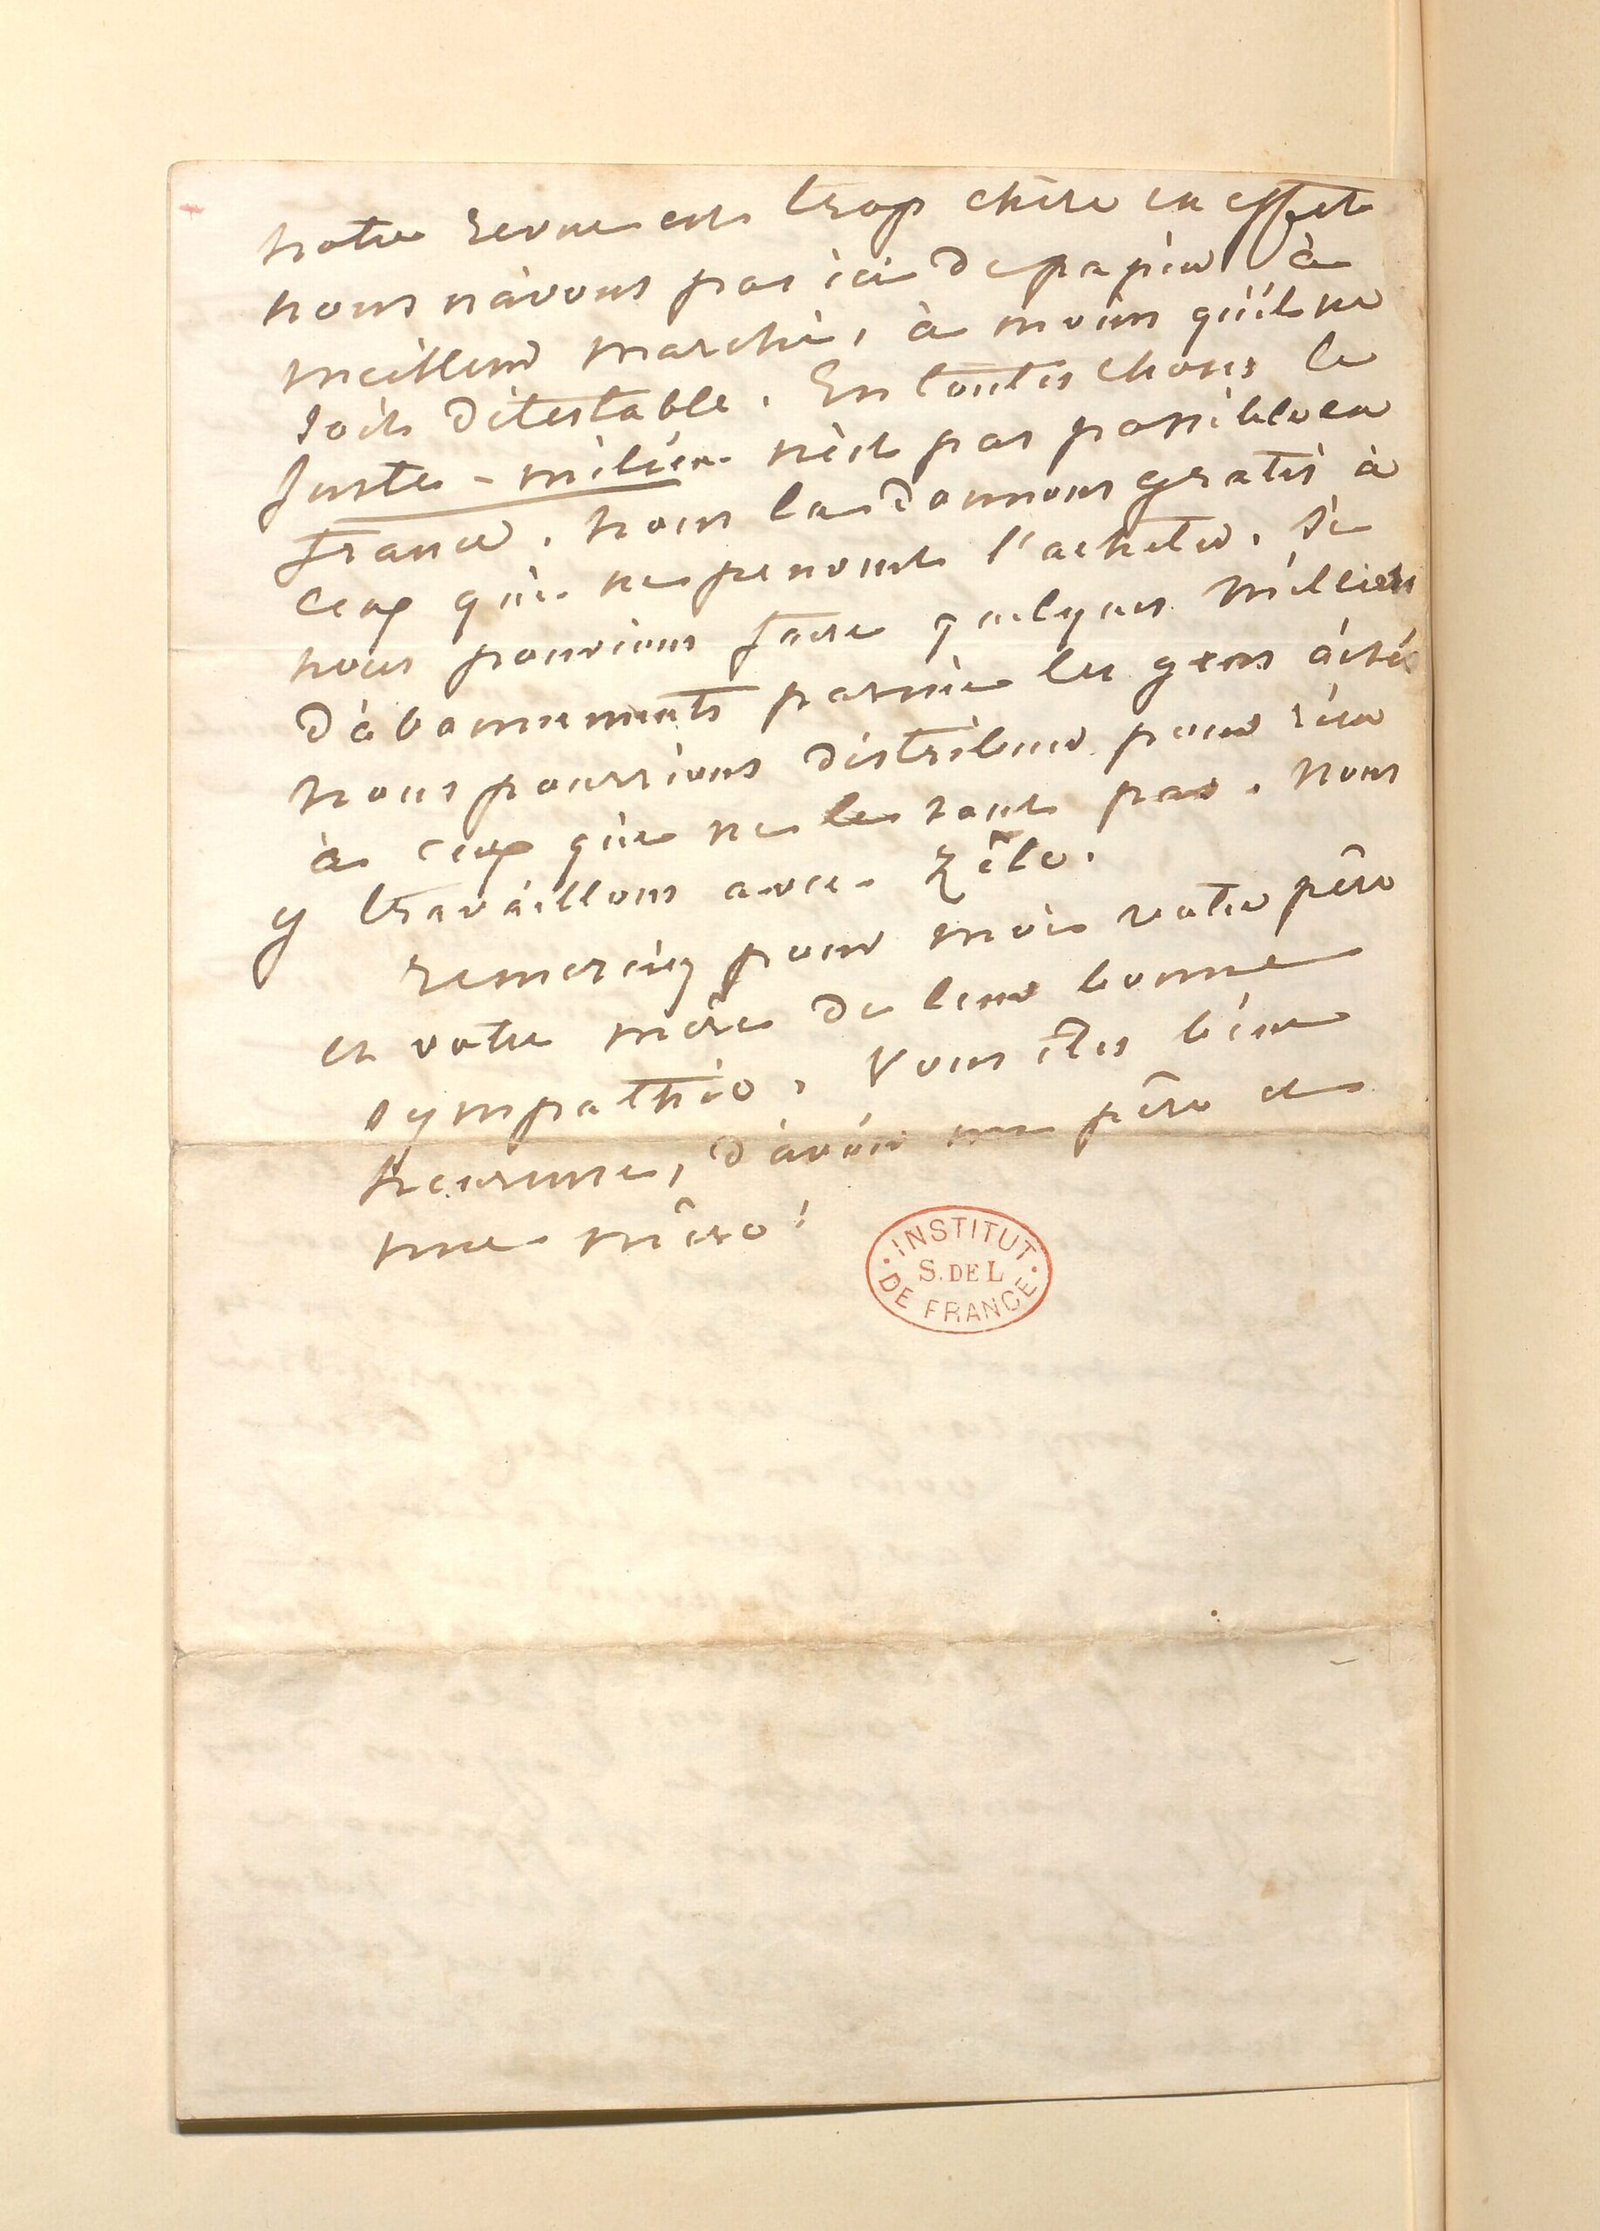 notre revue est trop chère en effet
nous n'avons pas ici de papier à
meilleur marché, à moins qu'il ne
soit détestable. En toutes choses le
juste-milieu n'est pas possible en
france. nous la donnons gratis à
ceux qui ne peuvent l'acheter. Si
nous pouvions faire quelques milliers
d'abonnements parmi les gens aisés
nous pourrions distribuer pour rien
à ceux qui ne le sont pas. Nous
y travaillons avec zêle.
remerciez pour moi votre père
et votre mère de leur bonne
sympathie. Vous êtes bien
heureuse, d'avoir un père et
une mère!
INSTITUT
S. DE L
DE FRANCE